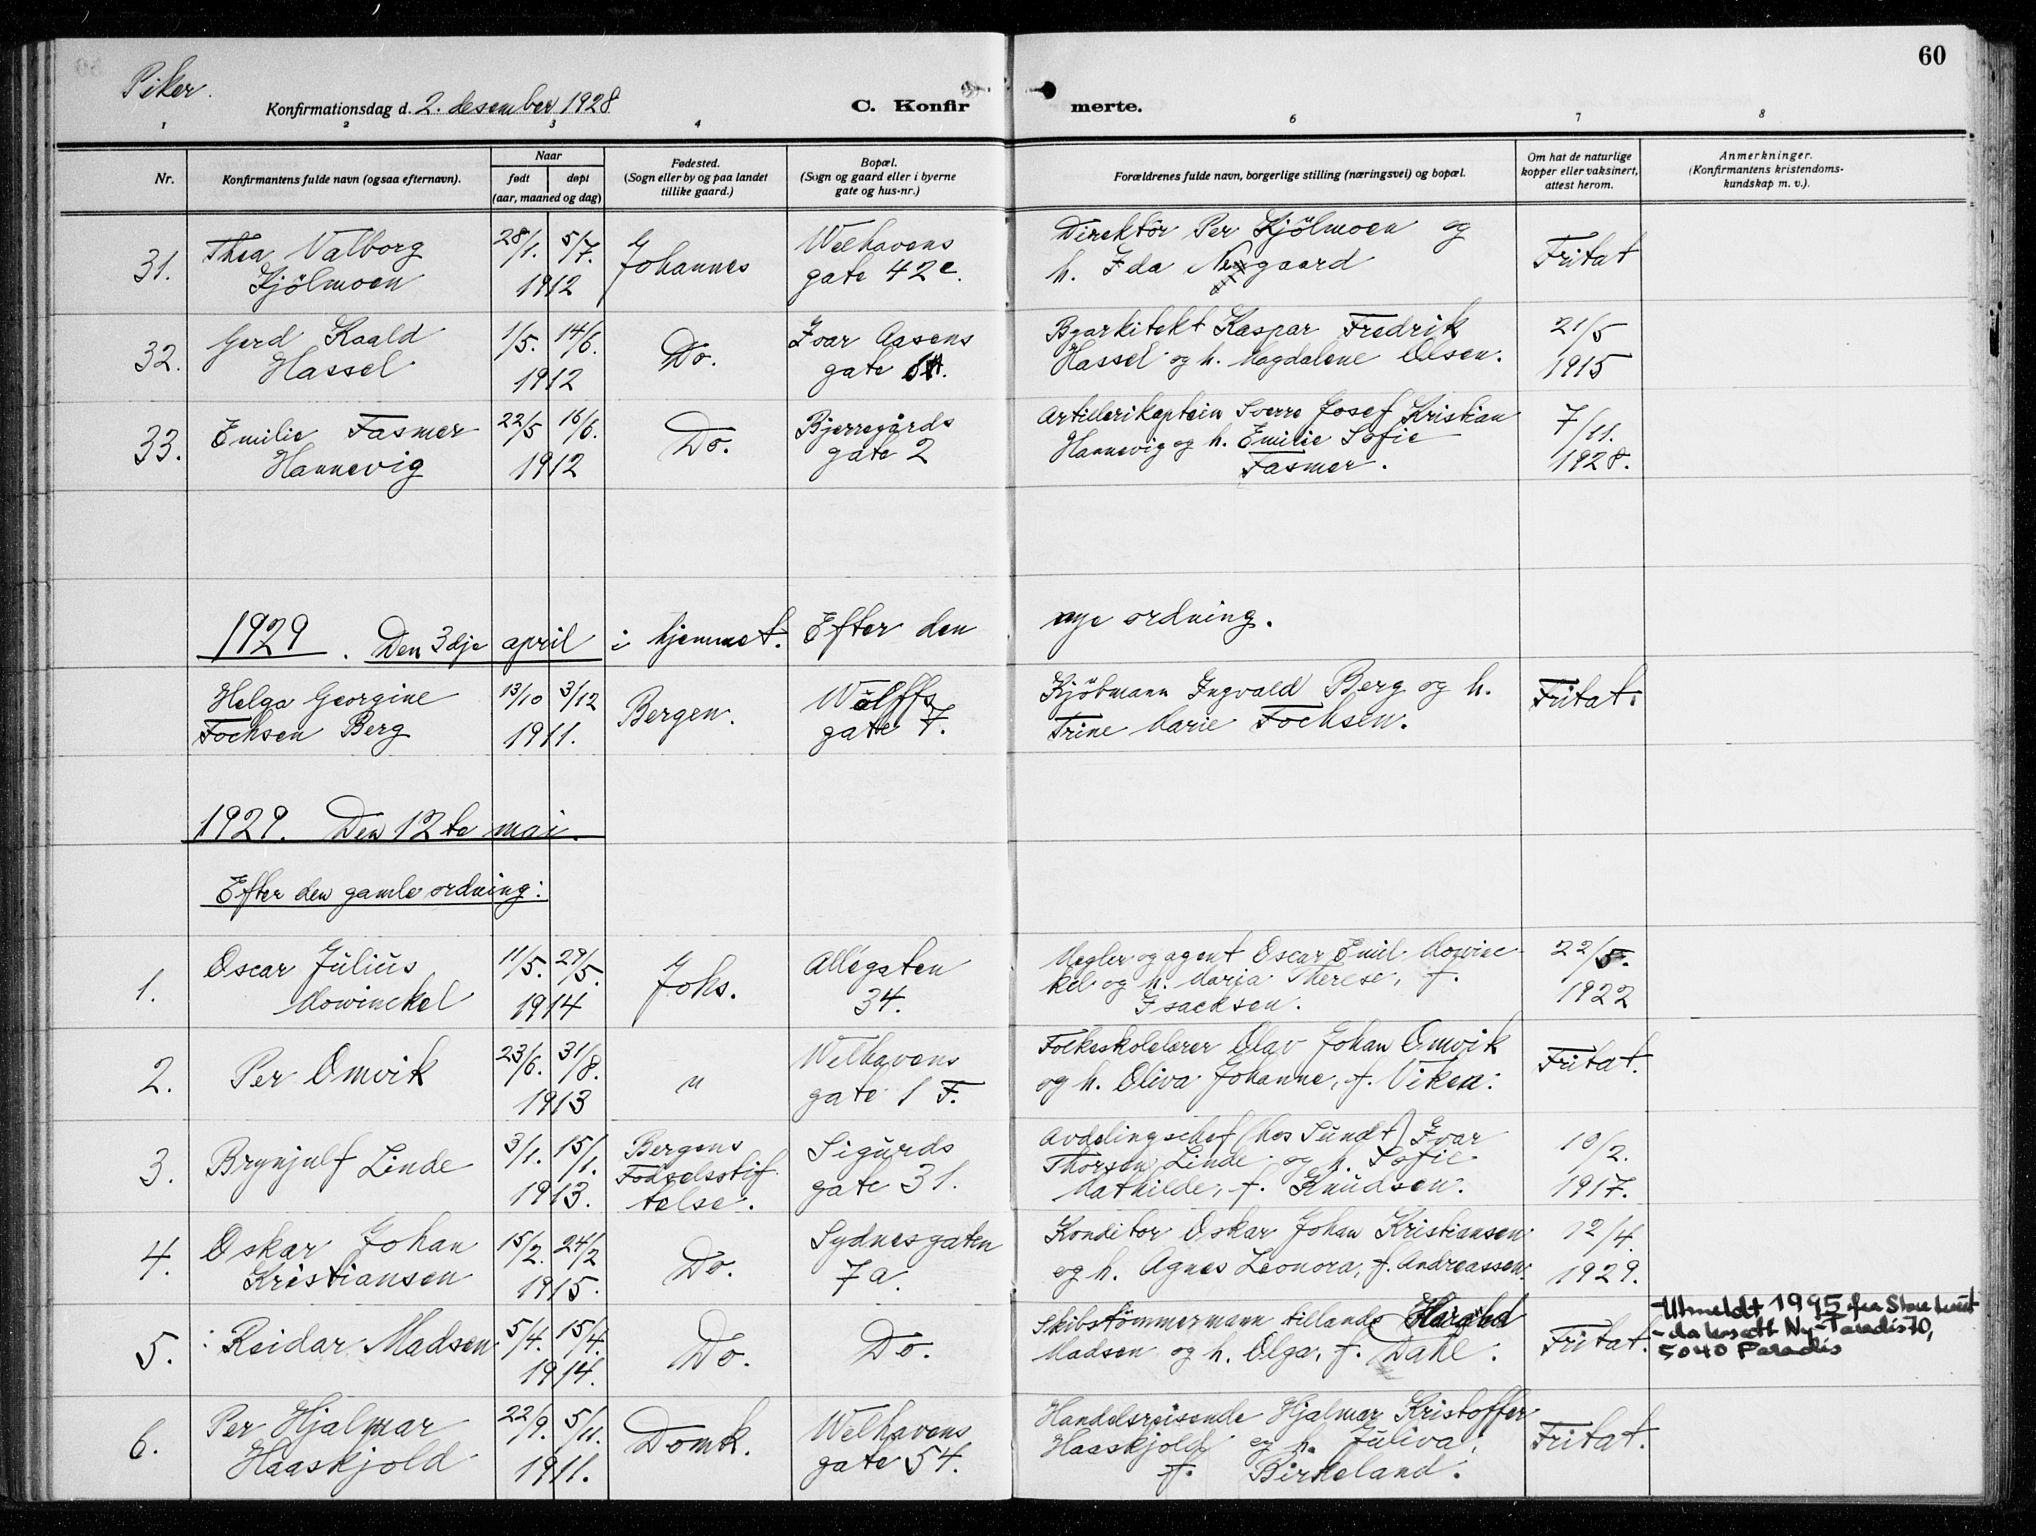 60
Piker.
Konfirmationsdag d. 2. desember 1928
C. Konfirmerte.
1 2 3 4 6 7 8
Nr.
Konfirmantens fulde navn (ogsaa efternavn).
Naar
født døpt
(aar, maaned og dag)
Fødested.
(Sogn eller by og paa landet
tillike gaard.)
Bopæl.
(Sogn og gaard eller i byerne
gate og hus-nr.)
Forældrenes fulde navn, borgerlige stilling (næringsvei) og bopæl.
Om hat de naturlige
kopper eller vaksinert,
attest herom.
Anmerkninger.
(Konfirmantens kristendoms-
kundskap m. v.).
31. Thea Valborg 28/1. 5/7. Johannes Welhavens Direktör Per Kjölmoen og Fritat
Kjölmoen 1912 gate 42c. h. Ida gaard
32. Gerd Kaald 1/5. 14/6. Do. Ivar Aasens Byarkitekt Kaspar Fredrik 21/5
Hassel 1912 gate Hassel og h. Magdalene Olsen. 1915
33. Emilie Fasmer 22/5 16/6. Do. Bjerregårds Artillerikaptein Sverre Josef Kristian 7/11.
Hannevig 1912 gate 2 Hannevig og h. Emilie Sofie 1928.
Fasmer.
1929. Den 3dje april i hjemmet. Efter den nye ordning.
Helga Georgine 13/10 3/12 Bergen. Wolffs Kjöbmann Ingvald Berg og h. Fritat.
Fochsen Berg 1911. gate 7. Trine Marie Fochsen.
1929. Den 12te mai.
Efter den gamle ordning:
1. Oscar Julius 11/5. 29/5. Johs. Allégaten Megler og agent Oscar Emil Mowinc- 22/5.
Mowinckel 1914 34. kel og h. Marja Therese, f. 1922
Isachsen.
2. Per Omvik 23/6. 31/8. " Welhavens Folkeskolelærer Olav Johan Omvik Fritat.
1913 gate 1 F. og h. Oliva Johanne, f. Viken.
3. Brynjulf Linde 3/1. 15/1. Bergens Sigurds Avdelingschef (hos Sundt) Ivar 10/2.
1913. Födselsstif- gate 31. Thorsen Linde og h. Sofie 1917.
telse. Mathilde, f. Knudsen.
4. Oskar Johan 15/2. 24/2 Do. Sydnesgaten Konditor Oskar Johan Kristiansen 12/4.
Kristiansen 1915. 7a. og h. Agnes Leonora, f. Andreassen. 1929.
5. Reidar Madsen 5/4. 15/4. Do. Do. Skibstömmermann tillands Harald Fritat. Utmeldt 1995 fra
1914. Madsen og h. Olga, f. Dahl. Ny-Paradis 70,
5040 Paradis
6. Per Hjalmar 22/9. 5/11. Domk. Welhavens Handelsreisende Hjalmar Kristoffer Fritat.
Haaskjold 1911. gate 54. Haaskjold og h. Juliva,
f. Birkeland.